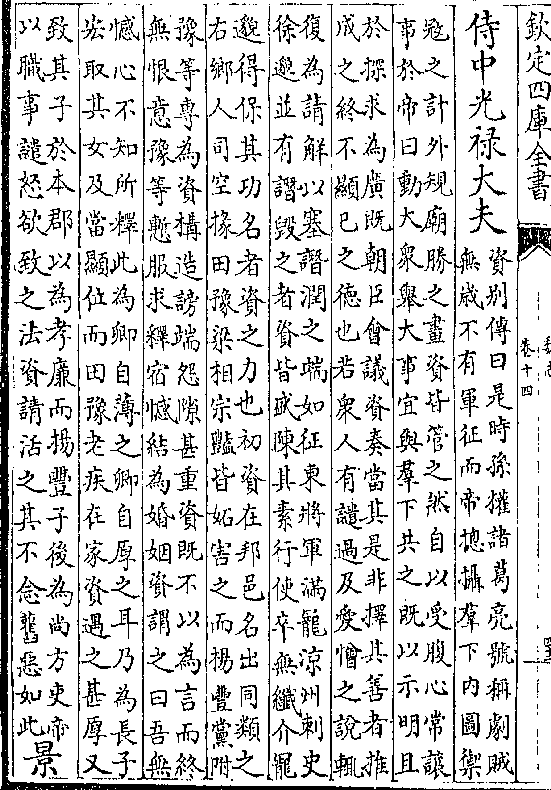 欽定四庫全書
卷十四
侍中光禄大夫
資别傳曰是時孫權諸葛亮號稱劇賊
無歲不有軍征而帝揔攝羣下内圖禦
寇之計外規廟勝之畫資皆管之然自以受腹心常讓
事於帝曰動大衆舉大事宜與羣下共之既以示明且
於探求為廣既朝臣會議資奏當其是非擇其善者推
成之終不顯已之德也若衆人有譴過及愛憎之說輒
復為請解以塞譖潤之端如征東將軍滿寵涼州刺史
徐邈並有譖毁之者資皆盛陳其素行使卒無纖介寵
邈得保其功名者資之力也初資在邦邑名出同類之
右鄉人司空掾田豫梁相宗豔皆妬害之而揚豐黨附
豫等專為資構造謗端怨隙甚重資既不以為言而終
無恨意豫等慙服求釋宿憾結為婚姻資謂之曰吾無
憾心不知所釋此為卿自薄之卿自厚之耳乃為長子
宏取其女及當顯位而田豫老疾在家資遇之甚厚又
致其子於本郡以為孝廉而揚豐子後為尚方吏帝
以職事譴怒欲致之法資請活之其不念舊惡如此
景